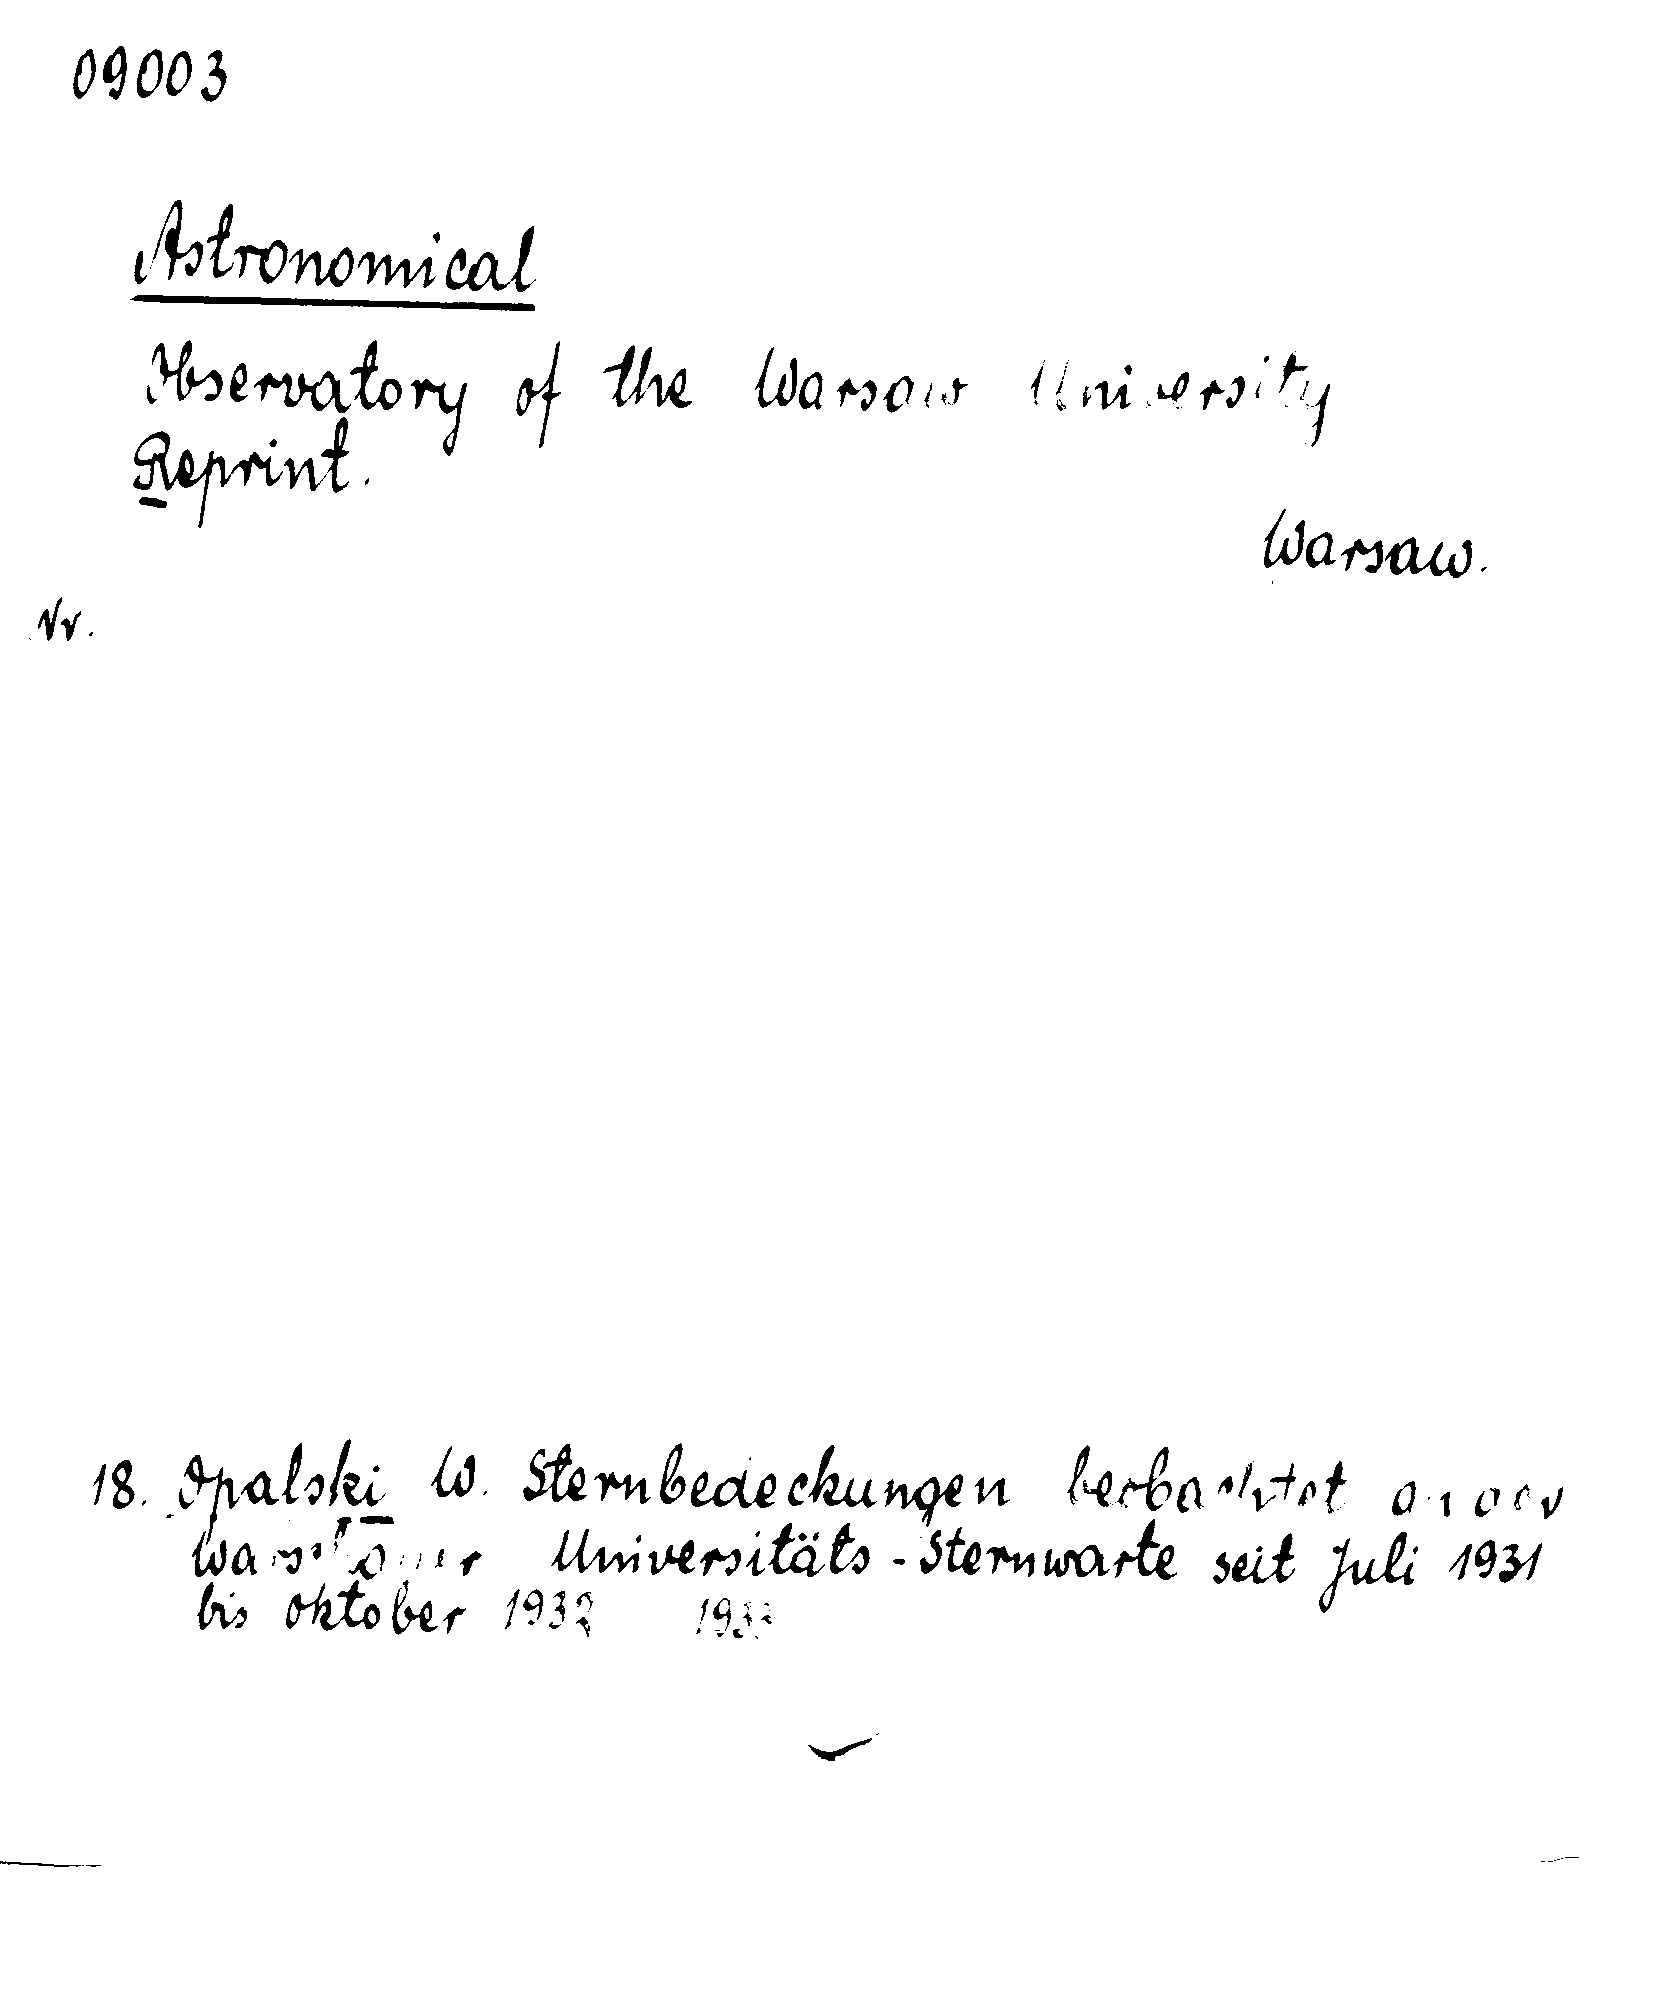 09003
Astronomical
Observatory of the Warsaw University
Reprint.
Warsaw.
Nr.
18. Opalski W. Sternbedeckungen beobachtet an der
Warschauer Universitäts-Sternwarte seit Juli 1931
bis oktober 1932